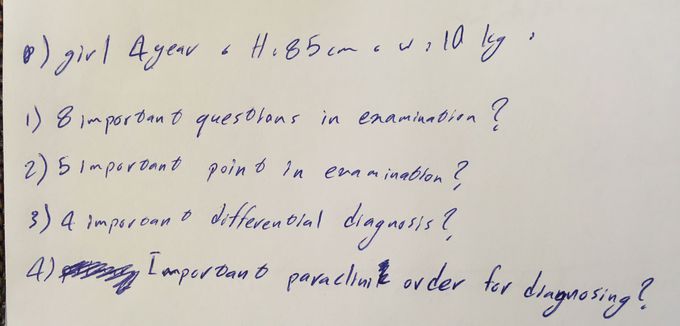 0) girl 4 year , H: 85 cm , w: 10 kg .
1) 8 important questions in examination?
2) 5 important point in examination?
3) 4 imporoant differential diagnosis?
4) Important paraclinik order for diagnosing?